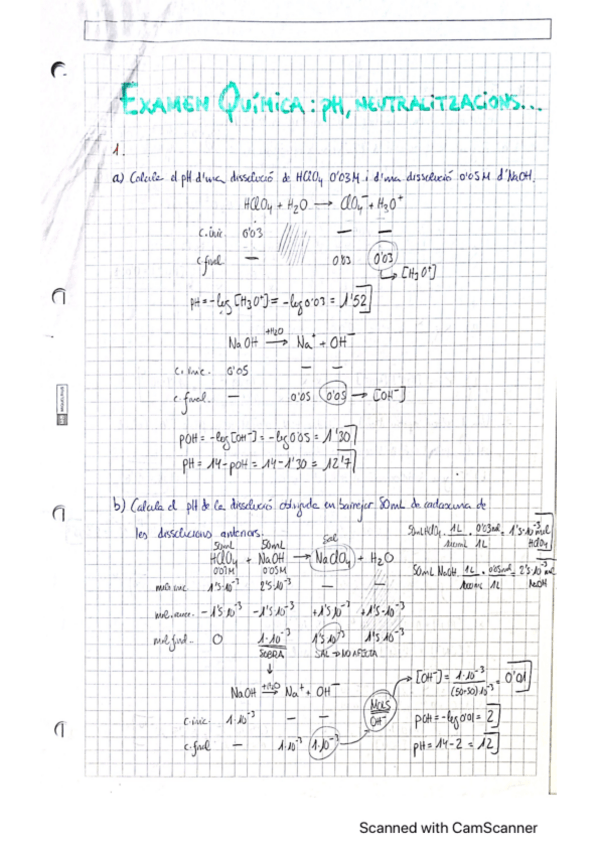 EXAMEN QUÍMICA: pH, NEUTRALITZACIONS...
1.
a) Calcula el pH d'una dissolució de HClO4 0'03M i d'una dissolució 0'05M d'NaOH.
HClO4 + H2O → ClO4⁻ + H3O⁺
c. inic. 0'03 — —
c. final — 0'03 0'03
→ [H3O⁺]
pH = -log [H3O⁺] = -log 0'03 = 1'52
NaOH +H2O → Na⁺ + OH⁻
c. inic. 0'05 — —
c. final — 0'05 0'05 → [OH⁻]
pOH = -log [OH⁻] = -log 0'05 = 1'30
pH = 14 - pOH = 14 - 1'30 = 12'7
b) Calcula el pH de la dissolució obtinguda en barrejar 50mL de cadascuna de
les dissolucions anteriors.
50mL HClO4 · 1L/1000mL · 0'03mol/1L = 1'5·10⁻³ mol HClO4
50mL NaOH · 1L/1000mL · 0'05mol/1L = 2'5·10⁻³ mol NaOH
50mL 50mL Sal
HClO4 + NaOH → NaClO4 + H2O
0'05M
mols inic. 1'5·10⁻³ 2'5·10⁻³ — —
- 1'5·10⁻³ - 1'5·10⁻³ + 1'5·10⁻³ + 1'5·10⁻³
mol final. 0 1·10⁻³ 1'5·10⁻³ 1'5·10⁻³
SOBRA SAL → NO AFECTA
NaOH +H2O → Na⁺ + OH⁻
c. inic. 1·10⁻³ — —
c. final — 1·10⁻³ 1·10⁻³
MOLS OH⁻
[OH⁻] = 1·10⁻³/(50+50)·10⁻³ = 0'01
pOH = -log 0'01 = 2
pH = 14 - 2 = 12
Scanned with CamScanner